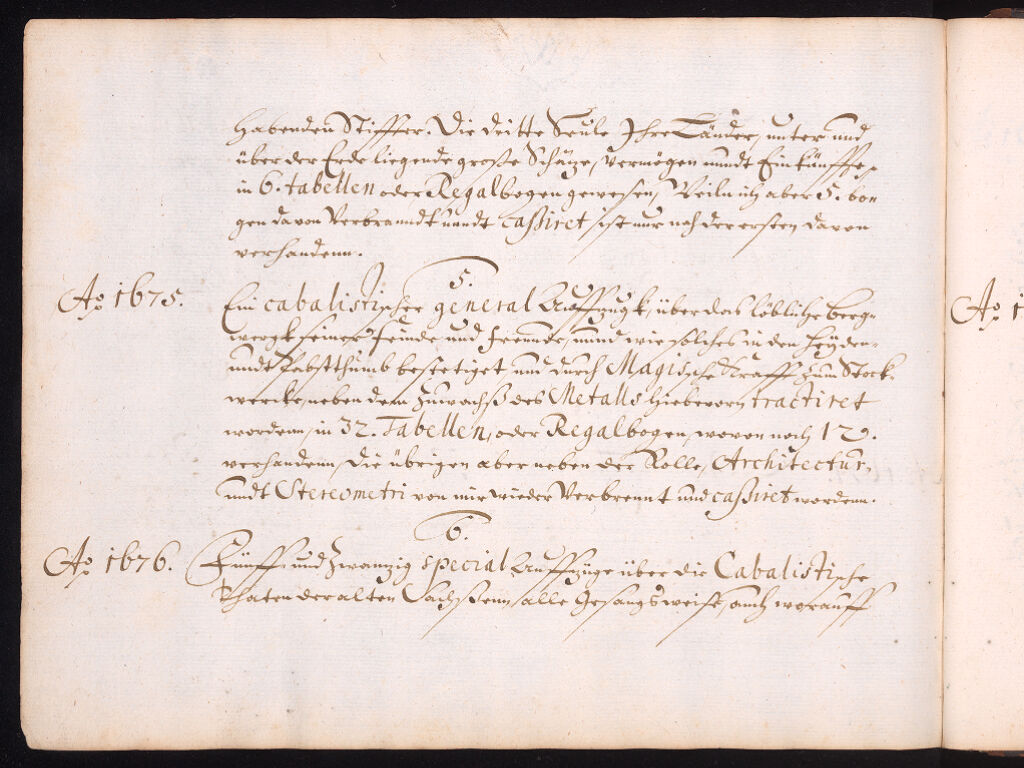 habenden Stiffter. Die dritte Seule Ihre Länder, unter und
über der Erde liegende große Schätze, Vermögen unndt Einkünffte,
in 6. tabellen oder Regalbogen gewesen, Weiln ich aber 5. bo-
gen davon Verbranndt unndt cassiret, ist nur noch der ersten davon
verhandenn.
5.
Ao 1675.
Ein cabalistischer general Auffzugk, über das löbliche Berg-
wergk seiner Feinde und Freunde, unnd wie solches in den Heyden-
undt Pabstthumb bestetiget und durch Magische Krafft zum Stock-
wercke, neben dem Zuwachß des Metalls hiebevorn tractiret
wordenn, in 32. Tabellen, oder Regalbogen, wovon noch 12.
verhandenn, die übrigen aber neben der Rolle, Architectur,
undt Stereometri von mir wieder Verbrennt und cassiret wordenn.
6.
Ao 1676.
Fünff und Zwanzig special Auffzüge über die Cabalistische
Thaten der alten Sachßenn, alle Gesangsweise, auch worauff
Ao 1